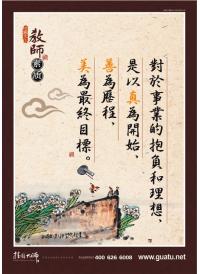 教師
素质
對於事業的抱負和理想、
是以真為開始、
善為歷程、
美為最終目標。
挂圖大師
400 626 6008
www.guatu.net